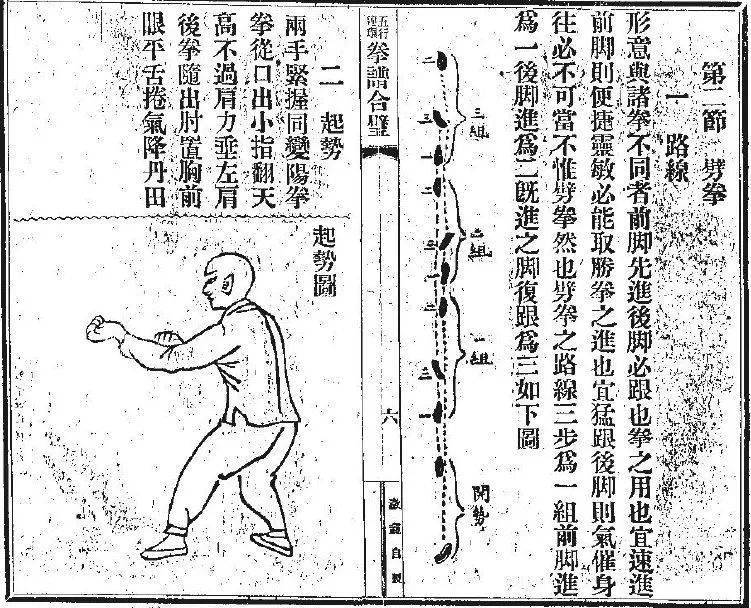 第二節 劈拳
一 路線
形意與諸拳不同者前脚先進後脚必跟也拳之用也宜速進
前脚則便捷靈敏必能取勝拳之進也宜猛跟後脚則氣催身
往必不可當不惟劈拳然也劈拳之路線三步爲一組前脚進
爲一後脚進爲二旣進之脚復跟爲三如下圖
三組
二組
一組
開勢
二
三
一
二
三
一
二
三
一
五行連環
拳譜合璧
六
自製
二 起勢
兩手緊握同變陽拳
拳從口出小指翻天
高不過肩力垂左肩
後拳隨出肘置胸前
眼平舌捲氣降丹田
起勢圖